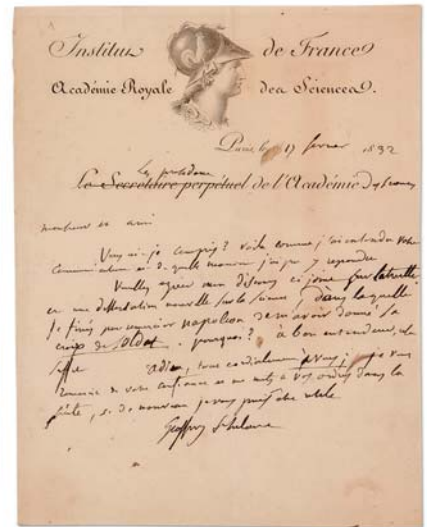 Institut de France
Académie Royale des Sciences.
Paris, le 17 fevrier 1832
Le président
Le Secrétaire perpétuel de l'Académie des Sciences
monsieur et ami
Vous ai-je compris ? voila comme j'ai entendu votre
communication et de quelle manière j'ai pu y repondre
Veuillez agréer mon discours ci joint sur laquelle
ce une dissertation nouvelle sur la science, dans laquelle
je finis par remercier napoleon de m'avoir donné la
croix de soldat. pourquoi ? à bon entendeur, salut
suffit adieu, tout cordialement à vous ; je vous
remercie de votre confiance et me mets à vos ordres dans la
suite, si de nouveau je vous puis être utile
Geoffroy St hilaire